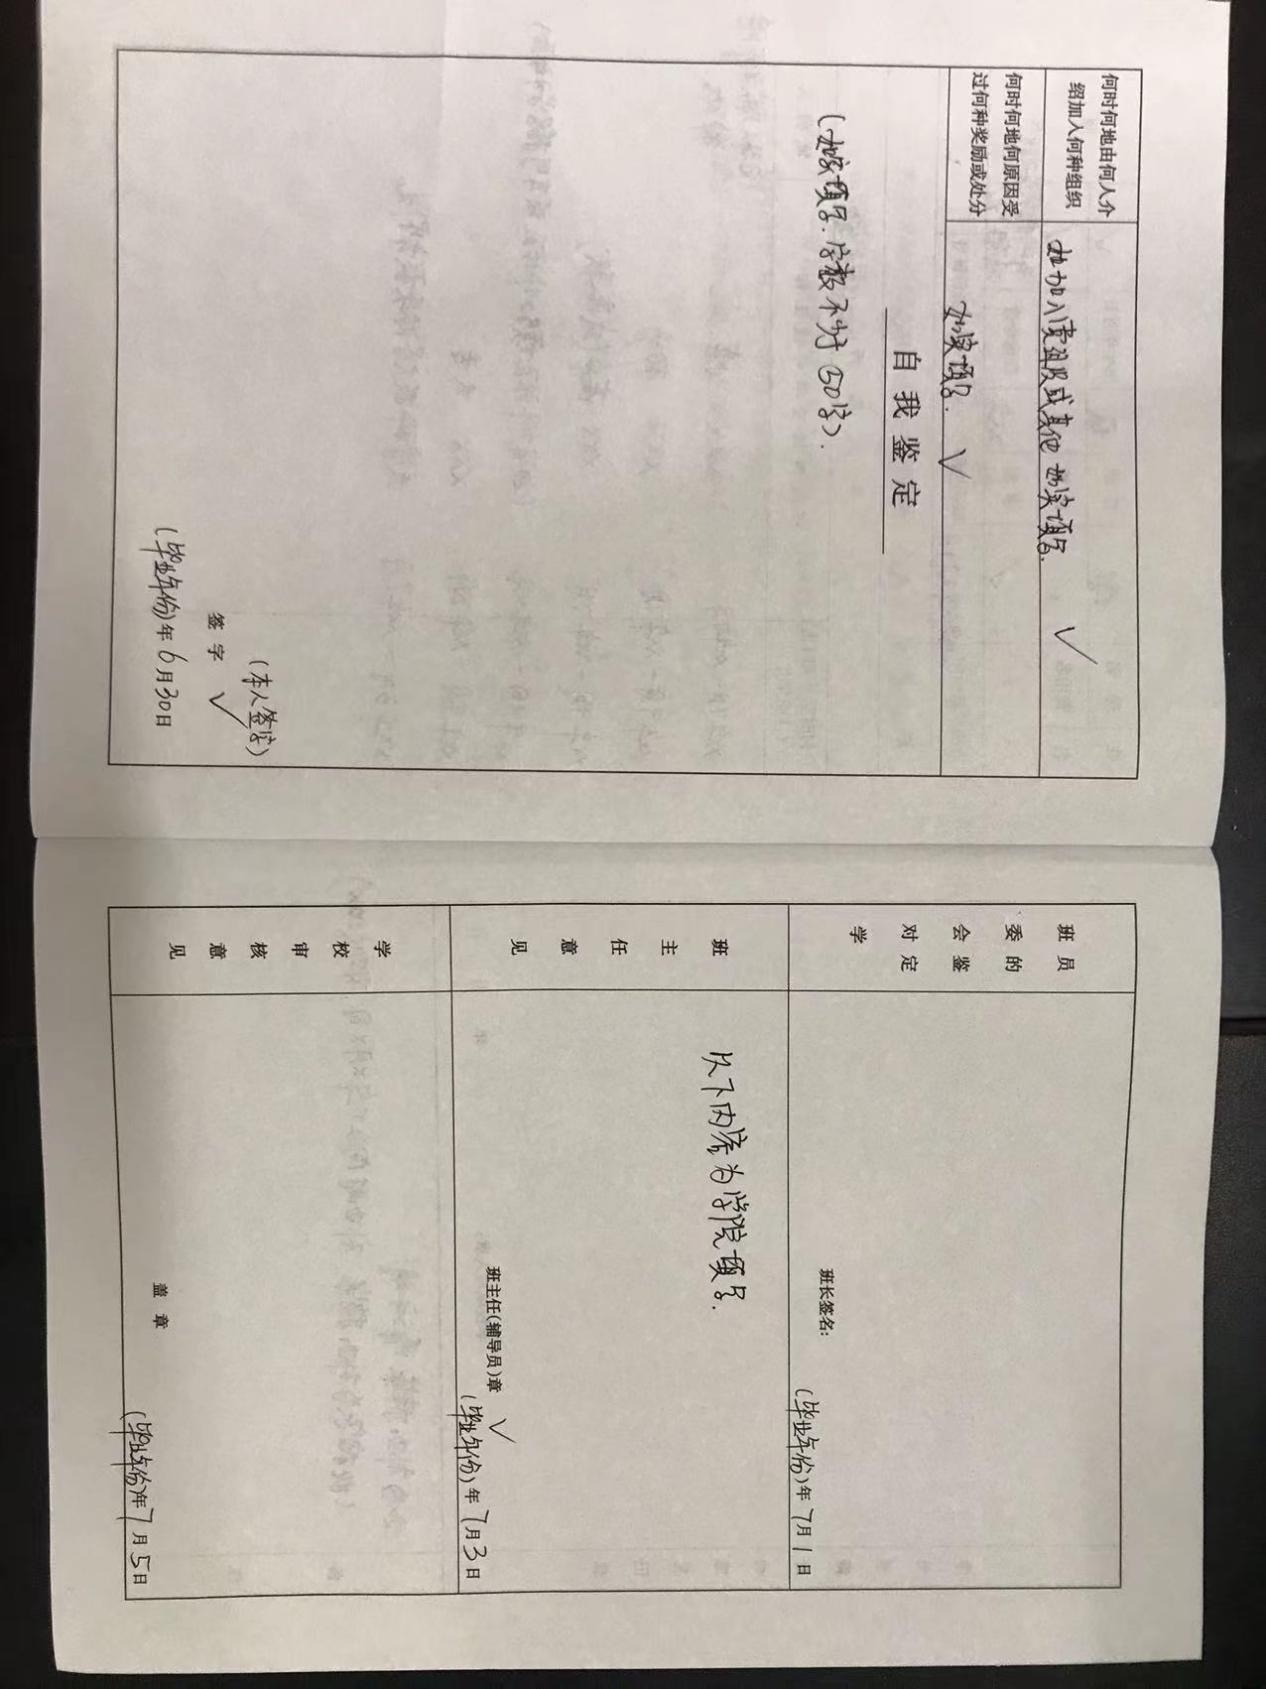 何时何地由何人介
绍加入何种组织
如加入党组织或其他 如实填写.
何时何地何原因受
过何种奖励或处分
如实填写.
自我鉴定
(如实填写.字数不少于50字).
(本人签字)
签 字
(毕业年份)年6月30日
班委会对学
员的鉴定
班长签名:
(毕业年份)年7月1日
班主任意见
以下内容为学院填写.
班主任(辅导员)章
(毕业年份)年7月3日
学校审核意见
盖 章
(毕业年份)年7月5日